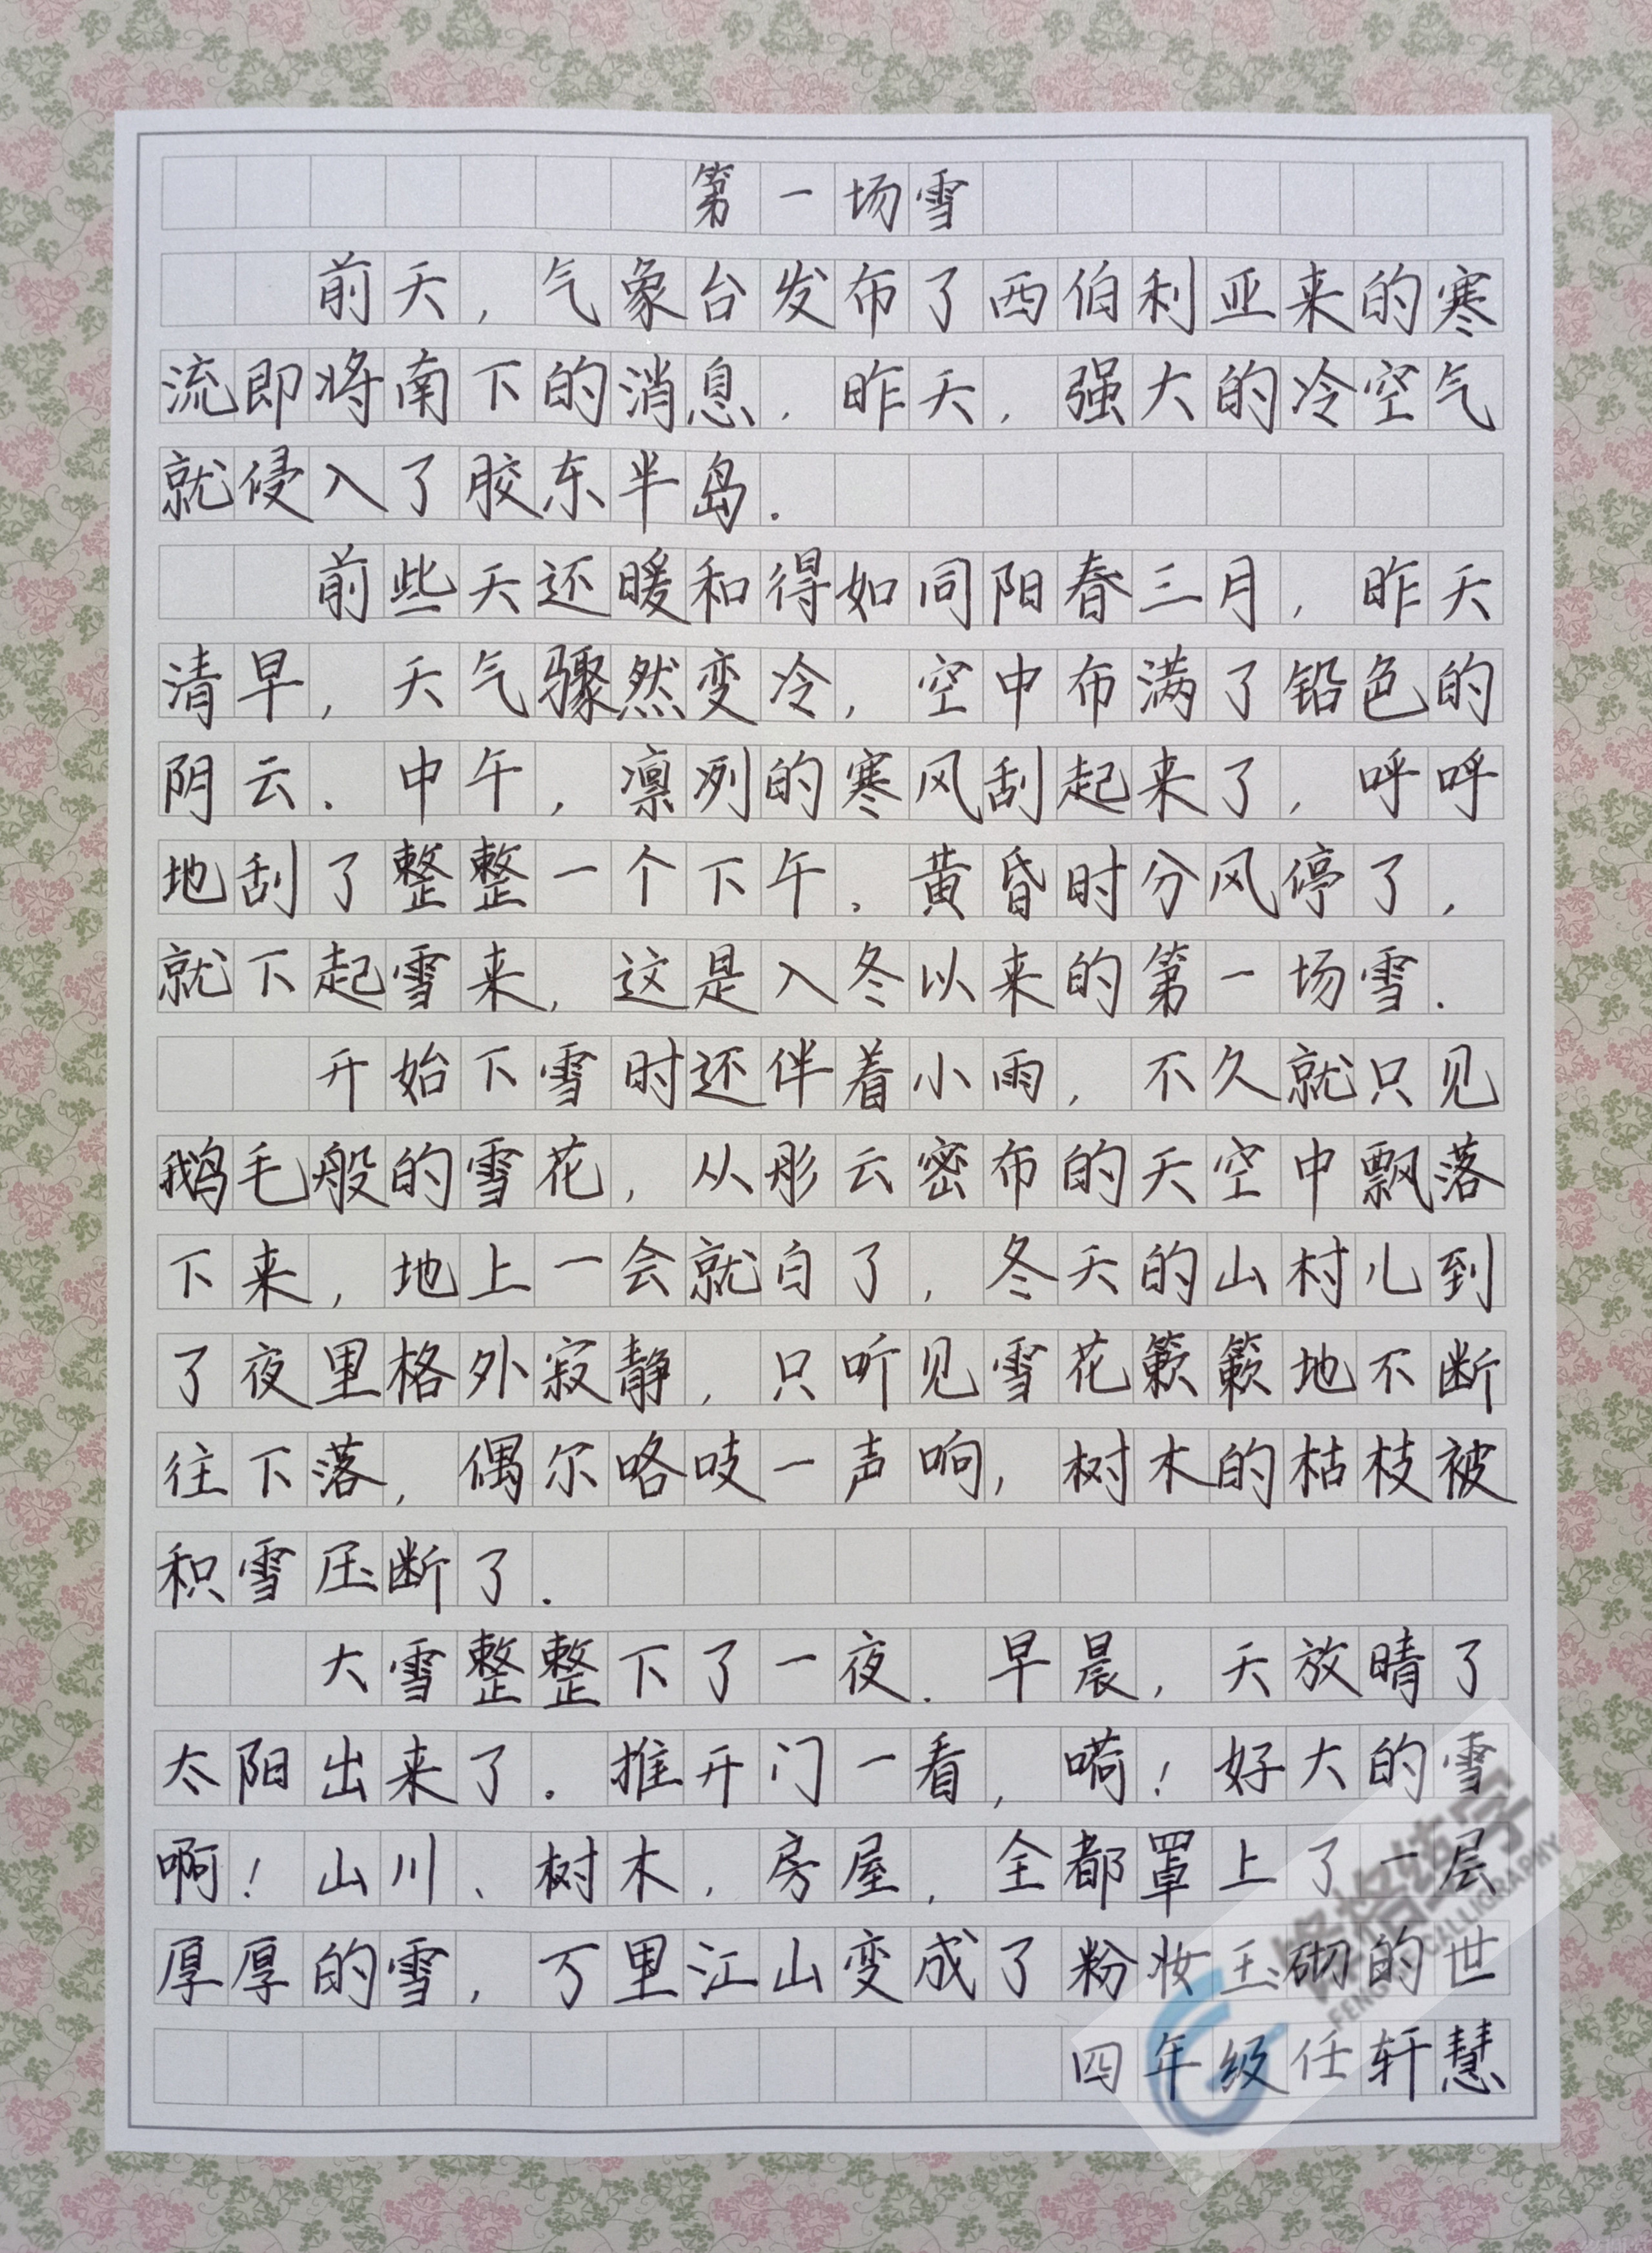 第一场雪
前天,气象台发布了西伯利亚来的寒
流即将南下的消息.昨天,强大的冷空气
就侵入了胶东半岛.
前些天还暖和得如同阳春三月,昨天
清早,天气骤然变冷,空中布满了铅色的
阴云.中午,凛冽的寒风刮起来了,呼呼
地刮了整整一个下午.黄昏时分风停了,
就下起雪来,这是入冬以来的第一场雪.
开始下雪时还伴着小雨,不久就只见
鹅毛般的雪花,从彤云密布的天空中飘落
下来,地上一会就白了,冬天的山村儿到
了夜里格外寂静,只听见雪花簌簌地不断
往下落,偶尔咯吱一声响,树木的枯枝被
积雪压断了.
大雪整整下了一夜.早晨,天放晴了
太阳出来了.推开门一看,嗬!好大的雪
啊!山川、树木,房屋,全都罩上了一层
厚厚的雪,万里江山变成了粉妆玉砌的世
四年级任轩慧
格练字
CALLIGRAPHY